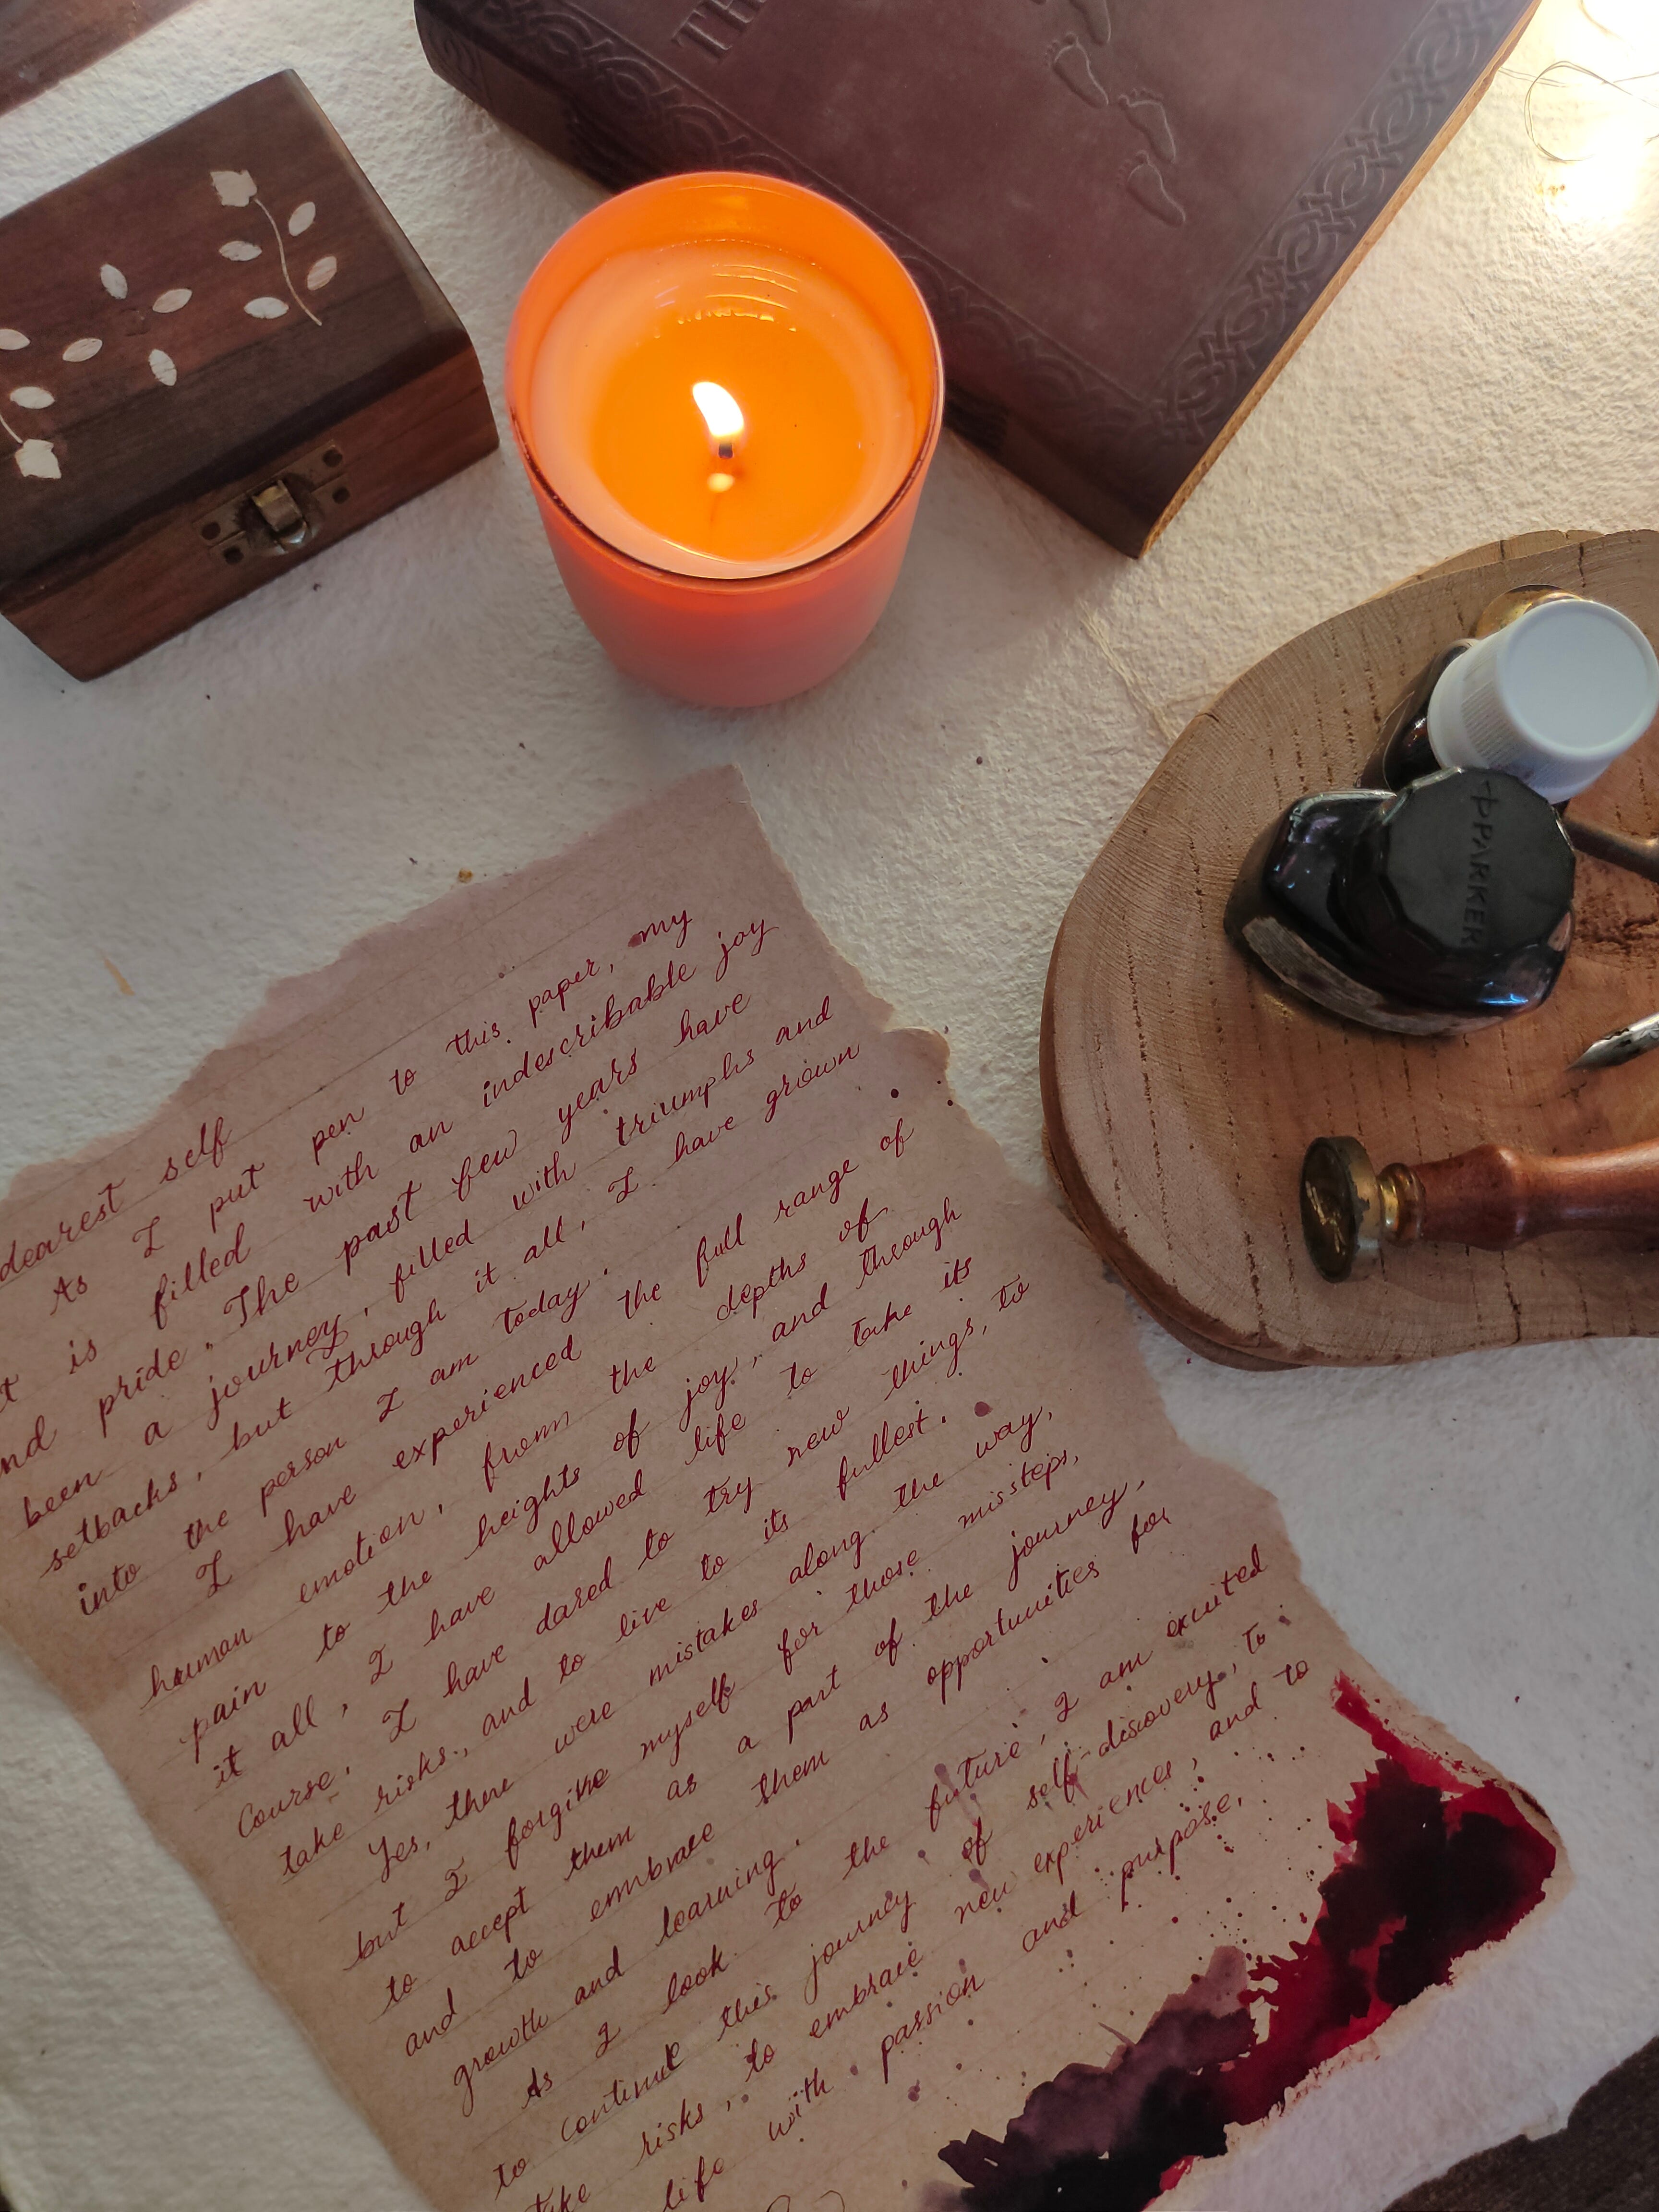 TH
PARKER
dearest self
As I put pen to this paper, my
is filled with an indescribable joy
nd pride. The past few years have
been a journey, filled with triumphs and
setbacks, but through it all, I have grown
into the person I am today.
I have experienced the full range of
human emotion, from the depths of
pain to the heights of joy, and through
it all, I have allowed life to take its
course. I have dared to try new things, to
take risks, and to live to its fullest.
Yes, there were mistakes along the way,
but I forgive myself for those missteps,
to accept them as a part of the journey,
and to embrace them as opportunities for
growth and learning.
As I look to the future, I am excited
to continue this journey of self-discovery, to
take risks, to embrace new experiences, and to
life with passion and purpose.